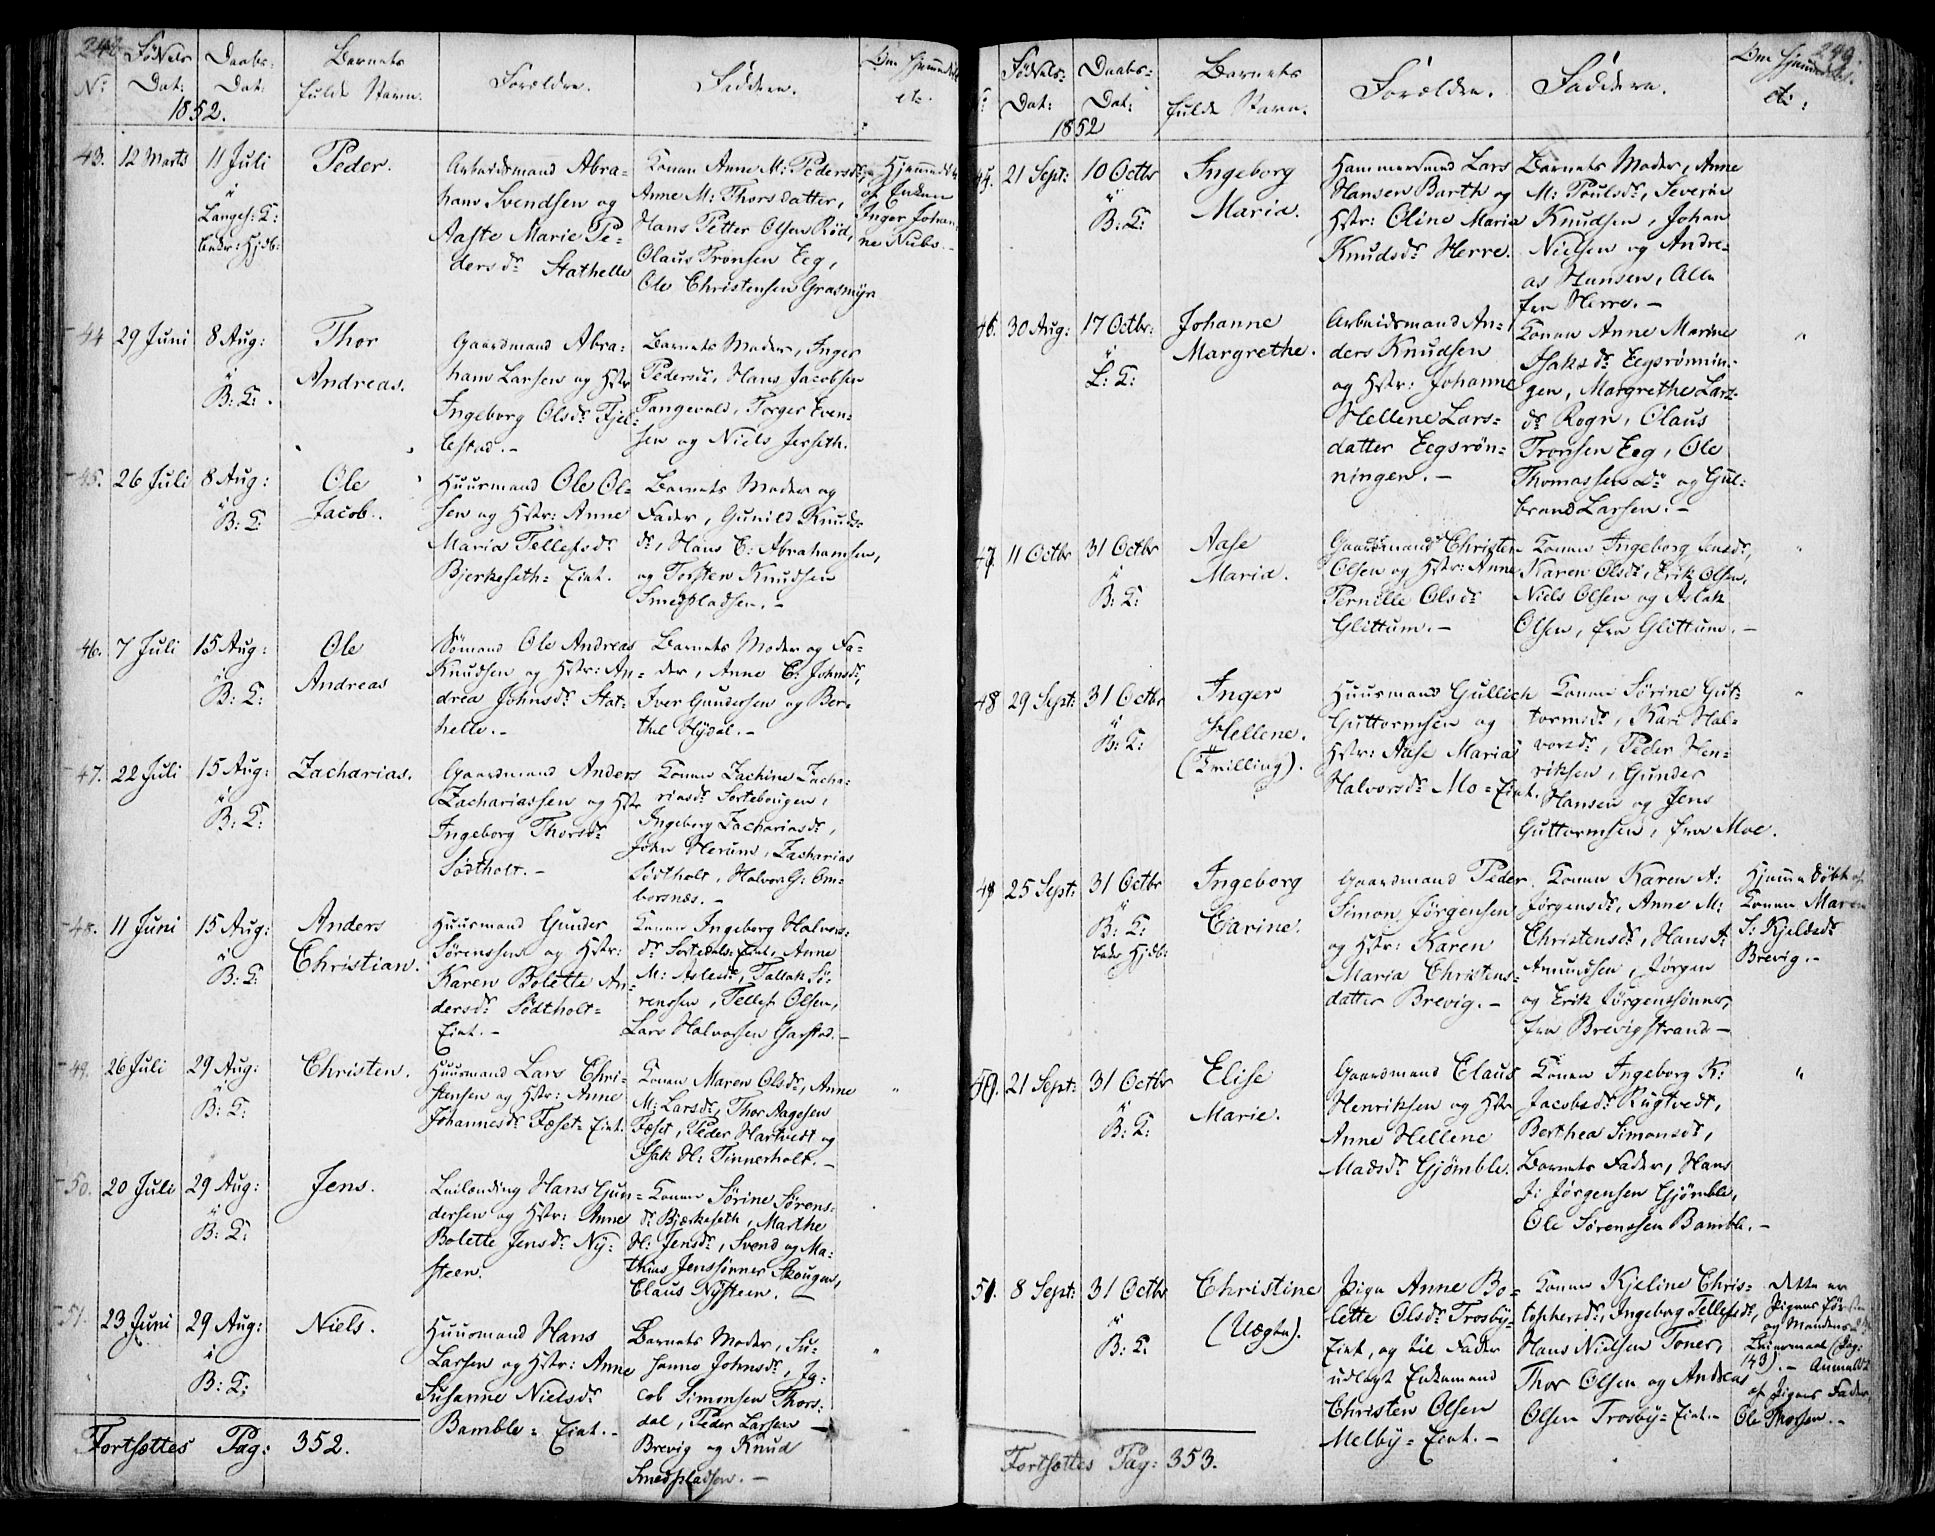 248
Fødsels
Daabs-
Barnets
Forældre.
Faddere.
Om hjemmedøbt
No
Dat:
Dat:
fulde Navn.
etc.
1852.
43. 12 Marts
11 Juli
i
Langes: K:
Peder.
Arbeidsmand Abra-
ham Svendsen og
Aaste Marie Pe-
dersdr Stathelle
Konen Anne M: Pedersdr,
Anne M: Thorsdatter,
Hans Petter Olsen Rød,
Olaus Tronsen Eeg,
Ole Christensen Grasmyr
Hjemmedøbt
af Enken
Inger Johan-
ne Nubs.-
44 29 Juni
8 Aug:
i
B: K:.
Thor
Andreas.
Gaardmand Abra-
ham Larsen og Hstr
Ingeborg Olsdr Fjel-
lestad.-
Barnets Moder, Inger
Pedersdr, Hans Jacobsen
Tangevald, Torger Even-
sen og Niels Jerseth.
45. 26 Juli
8 Aug:
i
B: K:
Ole
Jacob.
Huusmand Ole Ol-
sen og Hstr: Anne
Maria Tellefsdr
Bjerkeseth-Eiet.
Barnets Moder og
Fader, Gunild Knuds-
dr, Hans C: Abrahamsen,
og Torsten Knudsen
Smedpladsen.-
46. 7 Juli
15 Aug:
i
B: K:
Ole
Andreas
Sømand Ole Andreas
Knudsen og Hstr: An-
drea Johnsdr Stat-
helle.-
Barnets Moder og Fa-
der, Anne E: Johnsdr,
Iver Gundersen og Ber-
thel Hydal.-
47. 22 Juli
15 Aug:
i
B: K:
Zacharias.
Gaardmand Anders
Zachariassen og Hstr
Ingeborg Thorsdr
Sødtholt.-
Konen Zachine Zacha-
riasdr Sortebougen,
Ingeborg Zachariasdr,
John Herum, Zacharias
Sødtholt, Halvor G: Om-
borsnæs.-
48. 11 Juni
15 Aug:
i
B: K:
Anders
Christian.
Huusmand Gunder
Sørenssen og Hstr:
Karen Bolette An-
dersdr Sødtholt-
Eiet.-
Konen Ingeborg Halvors-
dr Sortedals-Eiet, Anne
M: Aslesdr, Tallak Sø-
renssen, Tellef Olsen,
Lars Halvorsen Garstad.-
49. 26 Juli
29 Aug:
i
B: K:
Christen.
Huusmand Lars Chri-
stensen og Hstr: Anne
Johannesdr Fæset-Eiet.
Konen Maren Olsdr, Anne
M: Larsdr, Thor Aagesen
Fæset, Peder Hartvedt og
Isak H: Tinnerholt.-
"
50. 20 Juli
29 Aug:
i
B: K:
Jens.
Leilænding Hans Gun-
dersen og Hstr: Anne
Bolette Jensdr Ny-
steen.
Konen Sørine Sørens-
dr Bjerkeseth, Marthe
H: Jensdr, Svend og Ma-
thias Jenssønner Skougen,
Claus Nysteen.-
51. 23 Juni
29 Aug:
i
B: K:
Niels.
Huusmand Hans
Larsen og Hstr: Anne
Susanne Nielsdr
Bamble-Eiet.-
Barnets Moder, Su-
sanne Johnsdr, Ja-
cob Simonsen Thors-
dal, Peder Larsen
Brevig og Knud
Smedpladsen.-
"
Fortsættes Pag: 352.
249.
Fødsels-
Daabs-
Barnets
Forældre.
Faddere.
Om hjemmedøbt
Dat:
Dat:
fulde Navn.
etc:
1852
45. 21 Sept:
10 Octbr
i
B: K:
Ingeborg
Maria.
Hammersmed Lars
Hansen Barth og
Hstr: Oline Maria
Knudsdr Herre.
Barnets Moder, Anne
M: Poulsdr, Severin
Knudsen, Johan
Nielsen og Andre-
as Hansen, Alle
fra Herre.-
46. 30 Aug:
17 Octbr:
i
L: K:
Johanne
Margrethe.
Arbeidsmand An-
ders Knudsen
og Hstr: Johanne
Hellene Lars-
datter Eegsrøn-
ningen.-
Konen Anne Marine
Isaksdr Eegsrønnin-
gen, Margrethe Lars-
dr Rogn, Olaus
Tronsen Eeg, Ole
Thomassen Do og Gul-
brand Larsen.-
"
47. 11 Octbr
31 Octbr
i
B: K:
Aase
Maria.
Gaardmand Christen
Olsen og Hstr: Anne
Pernille Olsdr
Glittum.-
Konen Ingeborg Jensdr,
Karen Olsdr, Erik Olsen,
Niels Olsen og Aslak
Olsen, fra Glittum.-
"
48 29 Sept:
31 Octbr
i
B: K:
Inger
Hellene.
(Tvilling).
Huusmand Gullich
Guttormsen og
Hstr: Aase Maria
Halvorsdr Mo-Eiet.
Konen Sørine Gut-
tormsdr, Kari Hal-
vorsdr, Peder Hen-
riksen, Gunder
Hansen og Jens
Guttormsen, fra Moe.
"
49 25 Sept:
31 Octbr
i
B: K:
Ingeborg
Carine.
Gaardmand Peder
Simon Jørgensen
og Hstr: Karen
Maria Christens-
datter Brevig.-
Konen Karen A:
Jørgensdr, Anne M:
Christensdr, Hans A:
Amundsen, Jørgen
og Erik Jørgenssønner,
fra Brevigstrand-
Hjemmedøbt af
Konen Maren
S: Kjeldsdr
Brevig.-
50. 21 Sept:
31 Octbr
i
B: K:
Elise
Marie.
Gaardmand Claus
Henriksen og Hstr
Anne Hellene
Madsdr Gjømble.
Konen Ingeborg K:
Jacobsdr Rugtvedt,
Berthea Simonsdr,
Barnets Fader, Hans
J: Jørgensen Gjømble,
Ole Sørenssen Bamble.-
"
51. 8 Sept:
31 Octbr
i
B: K:
Christine
(Uægte).
Pige Anne Bo-
lette Olsdr Trosby-
Eiet, og til Fader
udlagt Enkemand
Christen Olsen
Melby-Eiet.-
Konen Kjeline Chris-
tophersdr, Ingeborg Tellefsdr,
Hans Nielsen Toner,
Thor Olsen og Andreas
Olsen Trosby-Eiet.-
Dette er
Pigens første
og Mandens
Leiermaal (Pag:
143).- Anmeldt
af Pigens Fader
Ole Thorsen.-
Fortsættes Pag: 353.